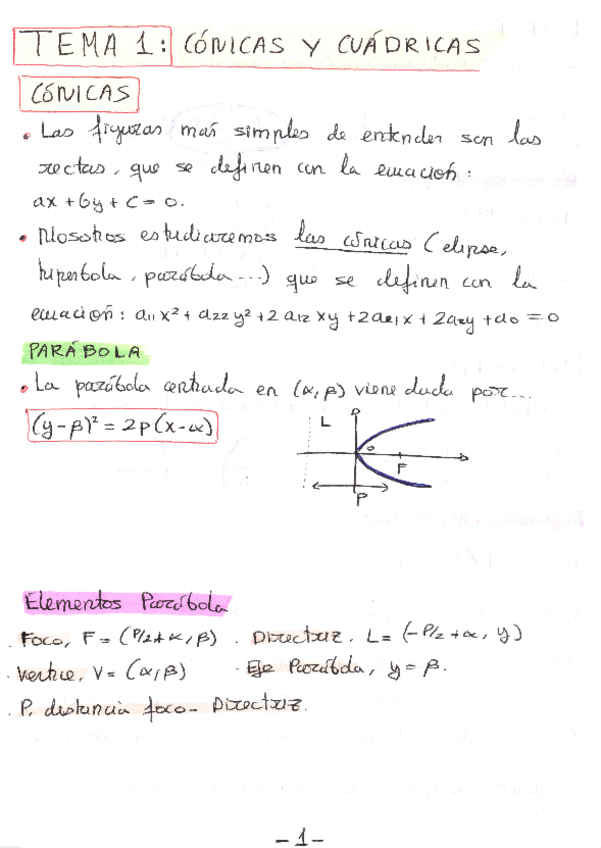 TEMA 1: CÓNICAS Y CUÁDRICAS
CÓNICAS
• Las figuras más simples de entender son las
rectas, que se definen con la ecuación:
ax + by + c = 0.
• Nosotros estudiaremos las cónicas (elipse,
hiperbola, parábola...) que se definen con la
ecuación: a₁₁x² + a₂₂y² + 2a₁₂xy + 2a₀₁x + 2a₀₂y + a₀ = 0
PARÁBOLA
• La parábola centrada en (α, β) viene dada por...
(y-β)² = 2p(x-α)
L
F
P
Elementos Parábola
. Foco, F = (P/2 + α, β) . Directriz. L = (-P/2 + α, y)
. Vertice, V = (α, β) . Eje Parábola, y = β.
. P. distancia foco - Directriz.
-1-